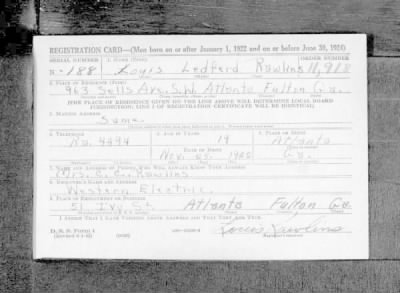 REGISTRATION CARD—(Men born on or after January 1, 1922 and on or before June 30, 1924)
SERIAL NUMBER 1. NAME (Print) ORDER NUMBER
N-188 Louis Ledford Rawlins 11,918
2. PLACE OF RESIDENCE (Print)
963 Sells Ave. S.W. Atlanta Fulton Ga.
[THE PLACE OF RESIDENCE GIVEN ON THE LINE ABOVE WILL DETERMINE LOCAL BOARD
JURISDICTION; LINE 2 OF REGISTRATION CERTIFICATE WILL BE IDENTICAL]
3. MAILING ADDRESS
Same.
4. TELEPHONE 5. AGE IN YEARS 6. PLACE OF BIRTH
19 Atlanta
Ra. 4494 DATE OF BIRTH
Nov. 25, 1922 Ga.
7. NAME AND ADDRESS OF PERSON WHO WILL ALWAYS KNOW YOUR ADDRESS
Mrs. C. C. Rawlins
8. EMPLOYER'S NAME AND ADDRESS
Western Electric.
9. PLACE OF EMPLOYMENT OR BUSINESS
51 Ivy St. Atlanta Fulton Ga.
I AFFIRM THAT I HAVE VERIFIED ABOVE ANSWERS AND THAT THEY ARE TRUE.
D. S. S. Form 1
Louis Rawlins